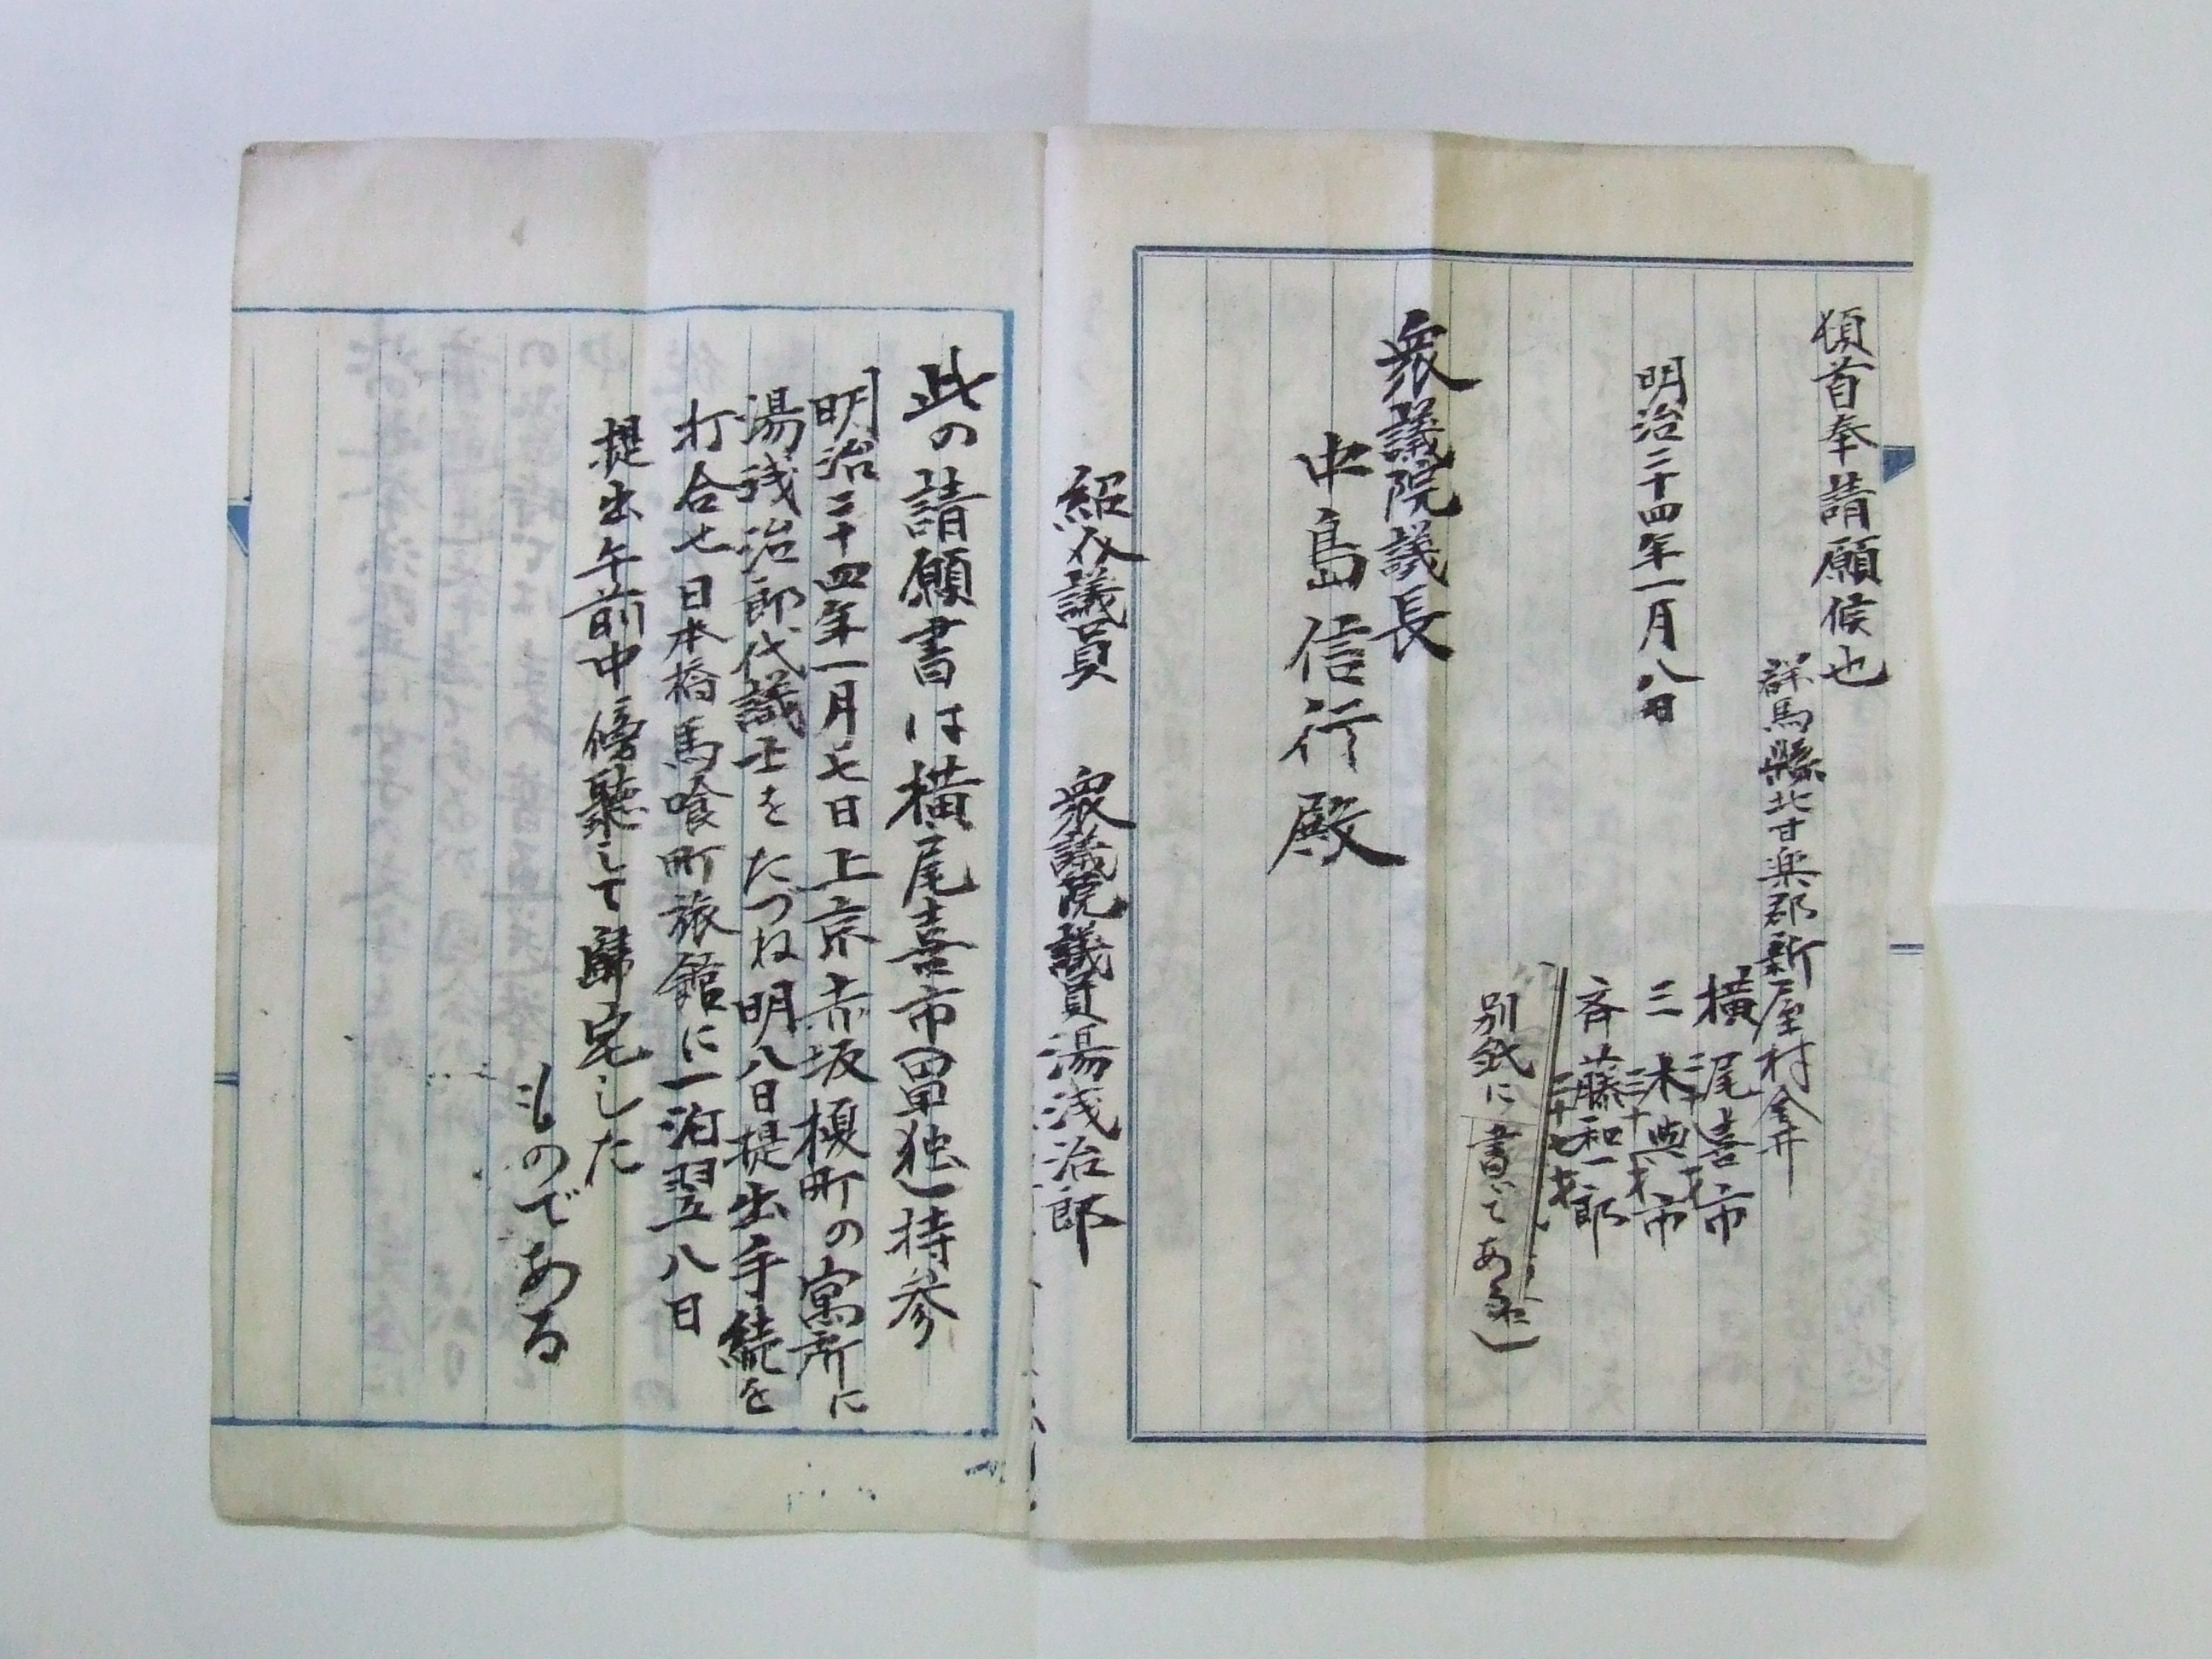 頓首奉請願候也
群馬縣北甘楽郡新屋村金井
横尾喜市
三木與市
三十才
斉藤和一郎
三十七才
別紙に書いてある
明治二十四年一月八日
衆議院議長
中島信行殿
紹介議員 衆議院議員湯浅治郎
此の請願書は横尾喜市単独持参
明治二十四年一月七日上京赤坂榎町の寓所に
湯浅治郎代議士をたづね明八日提出手続を
打合七日本橋馬喰町旅館に一泊翌八日
提出午前中傍聴して歸宅した
ものである